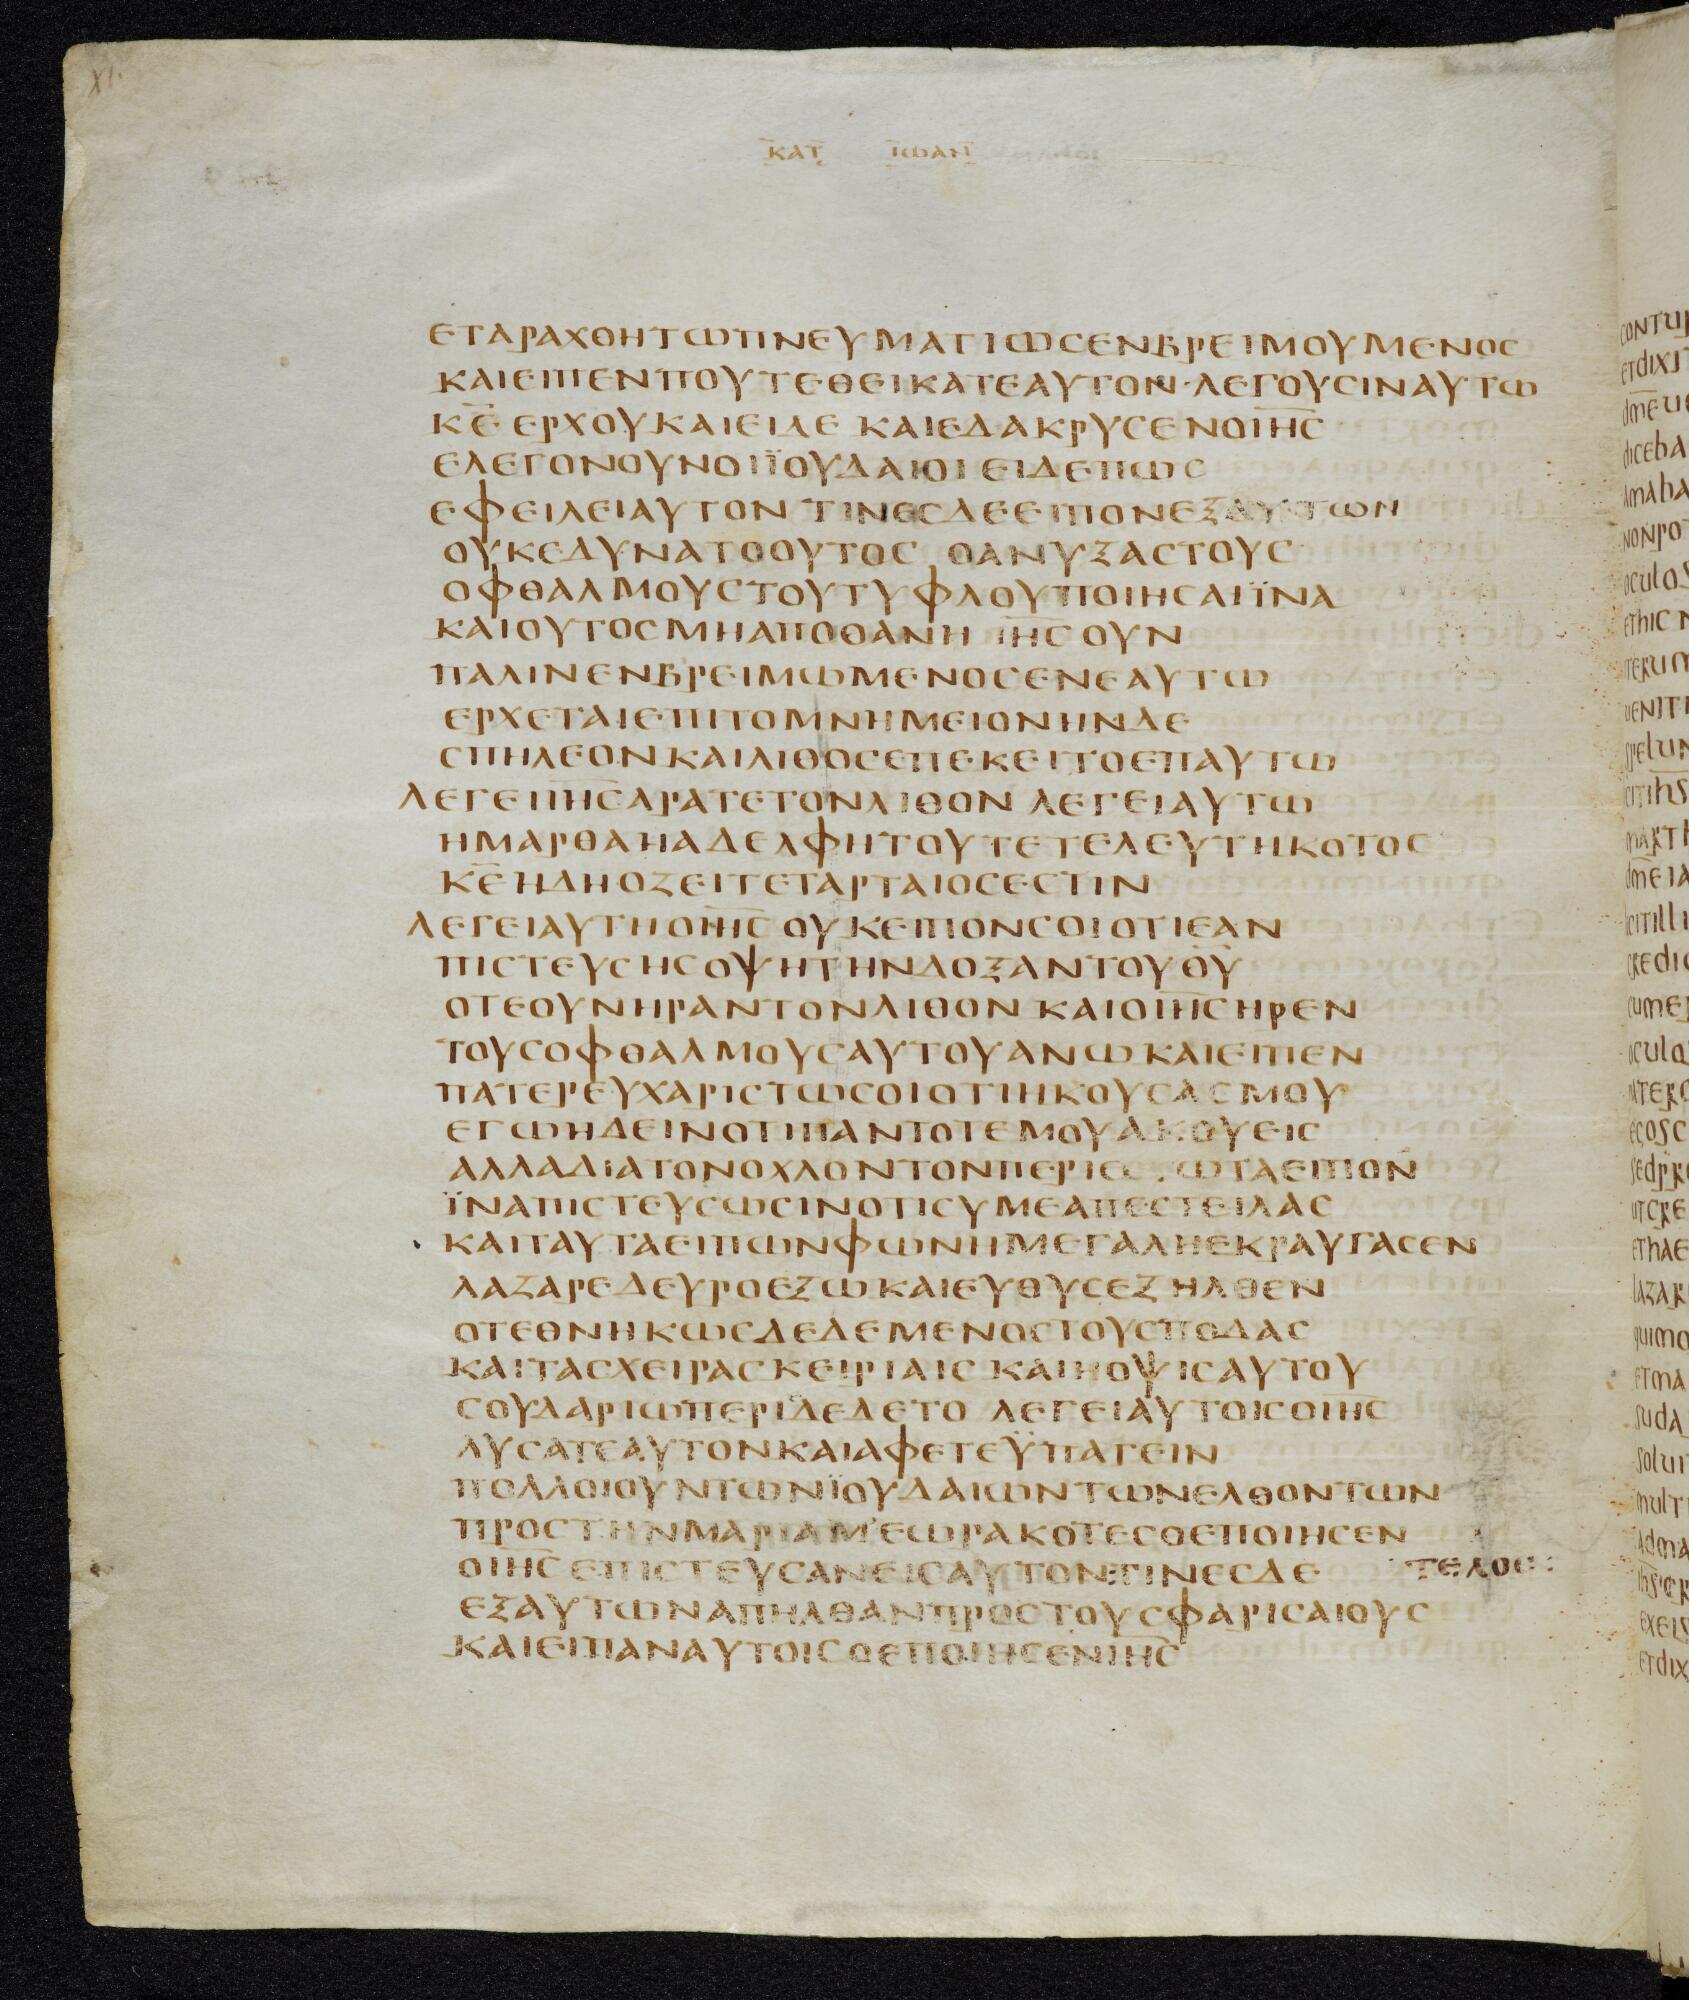 XI.
ΚΑΤ ΙΩΑΝ
ΕΤΑΡΑΧΘΗΤΩΠΝΕΥΜΑΤΙΩΣΕΝΒΡΕΙΜΟΥΜΕΝΟΣ
ΚΑΙΕΙΠΕΝΠΟΥΤΕΘΕΙΚΑΤΕΑΥΤΟΝ·ΛΕΓΟΥΣΙΝΑΥΤΩ
Κ̅Ε̅ ΕΡΧΟΥΚΑΙΕΙΔΕ ΚΑΙΕΔΑΚΡΥΣΕΝΟΙ̅Η̅Σ̅
ΕΛΕΓΟΝΟΥΝΟΙΪΟΥΔΑΙΟΙ ΕΙΔΕΠΩΣ
ΕΦΕΙΛΕΙΑΥΤΟΝ ΤΙΝΕΣΔΕΕΙΠΟΝΕΞΑΥΤΩΝ
ΟΥΚΕΔΥΝΑΤΟΟΥΤΟΣ ΟΑΝΥΞΑΣΤΟΥΣ
ΟΦΘΑΛΜΟΥΣΤΟΥΤΥΦΛΟΥΠΟΙΗΣΑΙΪΝΑ
ΚΑΙΟΥΤΟΣΜΗΑΠΟΘΑΝΗ Ι̅Η̅Σ̅ ΟΥΝ
ΠΑΛΙΝΕΝΒΡΕΙΜΩΜΕΝΟΣΕΝΕΑΥΤΩ
ΕΡΧΕΤΑΙΕΠΙΤΟΜΝΗΜΕΙΟΝΗΝΔΕ
ΣΠΗΛΕΟΝΚΑΙΛΙΘΟΣΕΠΕΚΕΙΤΟΕΠΑΥΤΩ
ΛΕΓΕΙΙ̅Η̅Σ̅ΑΡΑΤΕΤΟΝΛΙΘΟΝ ΛΕΓΕΙΑΥΤΩ
ΗΜΑΡΘΑΗΑΔΕΛΦΗΤΟΥΤΕΤΕΛΕΥΤΗΚΟΤΟΣ
Κ̅Ε̅ΗΔΗΟΖΕΙΤΕΤΑΡΤΑΙΟΣΕΣΤΙΝ
ΛΕΓΕΙΑΥΤΗΟΙ̅Η̅Σ̅ ΟΥΚΕΙΠΟΝΣΟΙΟΤΙΕΑΝ
ΠΙΣΤΕΥΣΗΣΟΨΗΤΗΝΔΟΞΑΝΤΟΥΘ̅Υ̅
ΟΤΕΟΥΝΗΡΑΝΤΟΝΛΙΘΟΝ ΚΑΙΟΙ̅Η̅Σ̅ΗΡΕΝ
ΤΟΥΣΟΦΘΑΛΜΟΥΣΑΥΤΟΥΑΝΩΚΑΙΕΙΠΕΝ
ΠΑΤΕΡΕΥΧΑΡΙΣΤΩΣΟΙΟΤΙΗΚΟΥΣΑΣΜΟΥ
ΕΓΩΗΔΕΙΝΟΤΙΠΑΝΤΟΤΕΜΟΥΑΚΟΥΕΙΣ
ΑΛΛΑΔΙΑΤΟΝΟΧΛΟΝΤΟΝΠΕΡΙΕΣ ΩΤΑΕΙΠΟΝ
ΪΝΑΠΙΣΤΕΥΣΩΣΙΝΟΤΙΣΥΜΕΑΠΕΣΤΕΙΛΑΣ
ΚΑΙΤΑΥΤΑΕΙΠΩΝΦΩΝΗΜΕΓΑΛΗΕΚΡΑΥΓΑΣΕΝ
ΛΑΖΑΡΕΔΕΥΡΟΕΞΩΚΑΙΕΥΘΥΣΕΞΗΛΘΕΝ
ΟΤΕΘΝΗΚΩΣΔΕΔΕΜΕΝΟΣΤΟΥΣΠΟΔΑΣ
ΚΑΙΤΑΣΧΕΙΡΑΣΚΕΙΡΙΑΙΣ ΚΑΙΗΟΨΙΣΑΥΤΟΥ
ΣΟΥΔΑΡΙΩΠΕΡΙΔΕΔΕΤΟ ΛΕΓΕΙΑΥΤΟΙΣΟΙ̅Η̅Σ̅
ΛΥΣΑΤΕΑΥΤΟΝΚΑΙΑΦΕΤΕΫΠΑΓΕΙΝ
ΠΟΛΛΟΙΟΥΝΤΩΝΪΟΥΔΑΙΩΝΤΩΝΕΛΘΟΝΤΩΝ
ΠΡΟΣΤΗΝΜΑΡΙΑΜ'ΕΩΡΑΚΟΤΕΣΟΕΠΟΙΗΣΕΝ
ΟΙ̅Η̅Σ̅ΕΠΙΣΤΕΥΣΑΝΕΙΣΑΥΤΟΝ:ΤΙΝΕΣΔΕ ΤΕΛΟΣ:
ΕΞΑΥΤΩΝΑΠΗΛΘΑΝΠΡΟΣΤΟΥΣΦΑΡΙΣΑΙΟΥΣ
ΚΑΙΕΙΠΑΝΑΥΤΟΙΣΟΕΠΟΙΗΣΕΝΙ̅Η̅Σ̅